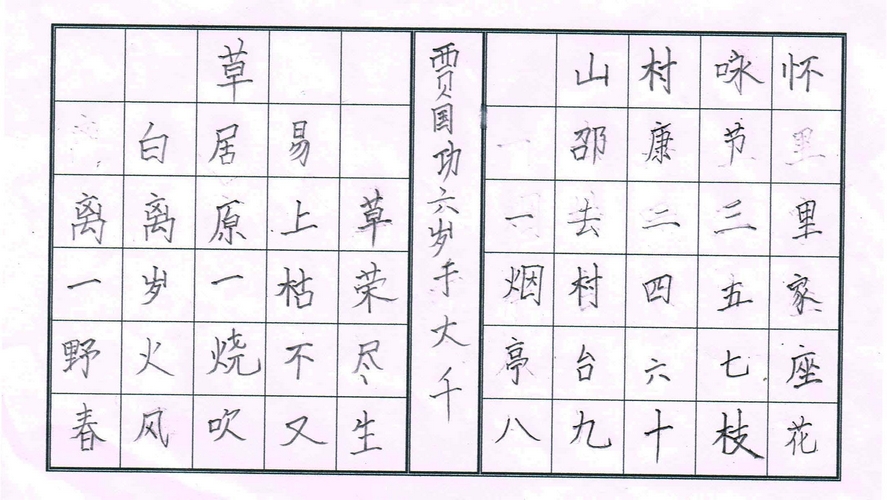 草
白居易
离离原上草
一岁一枯荣
野火烧不尽
春风吹又生
贾国功六岁手大千
山村咏怀
邵康节
一去二三里
烟村四五家
亭台六七座
八九十枝花